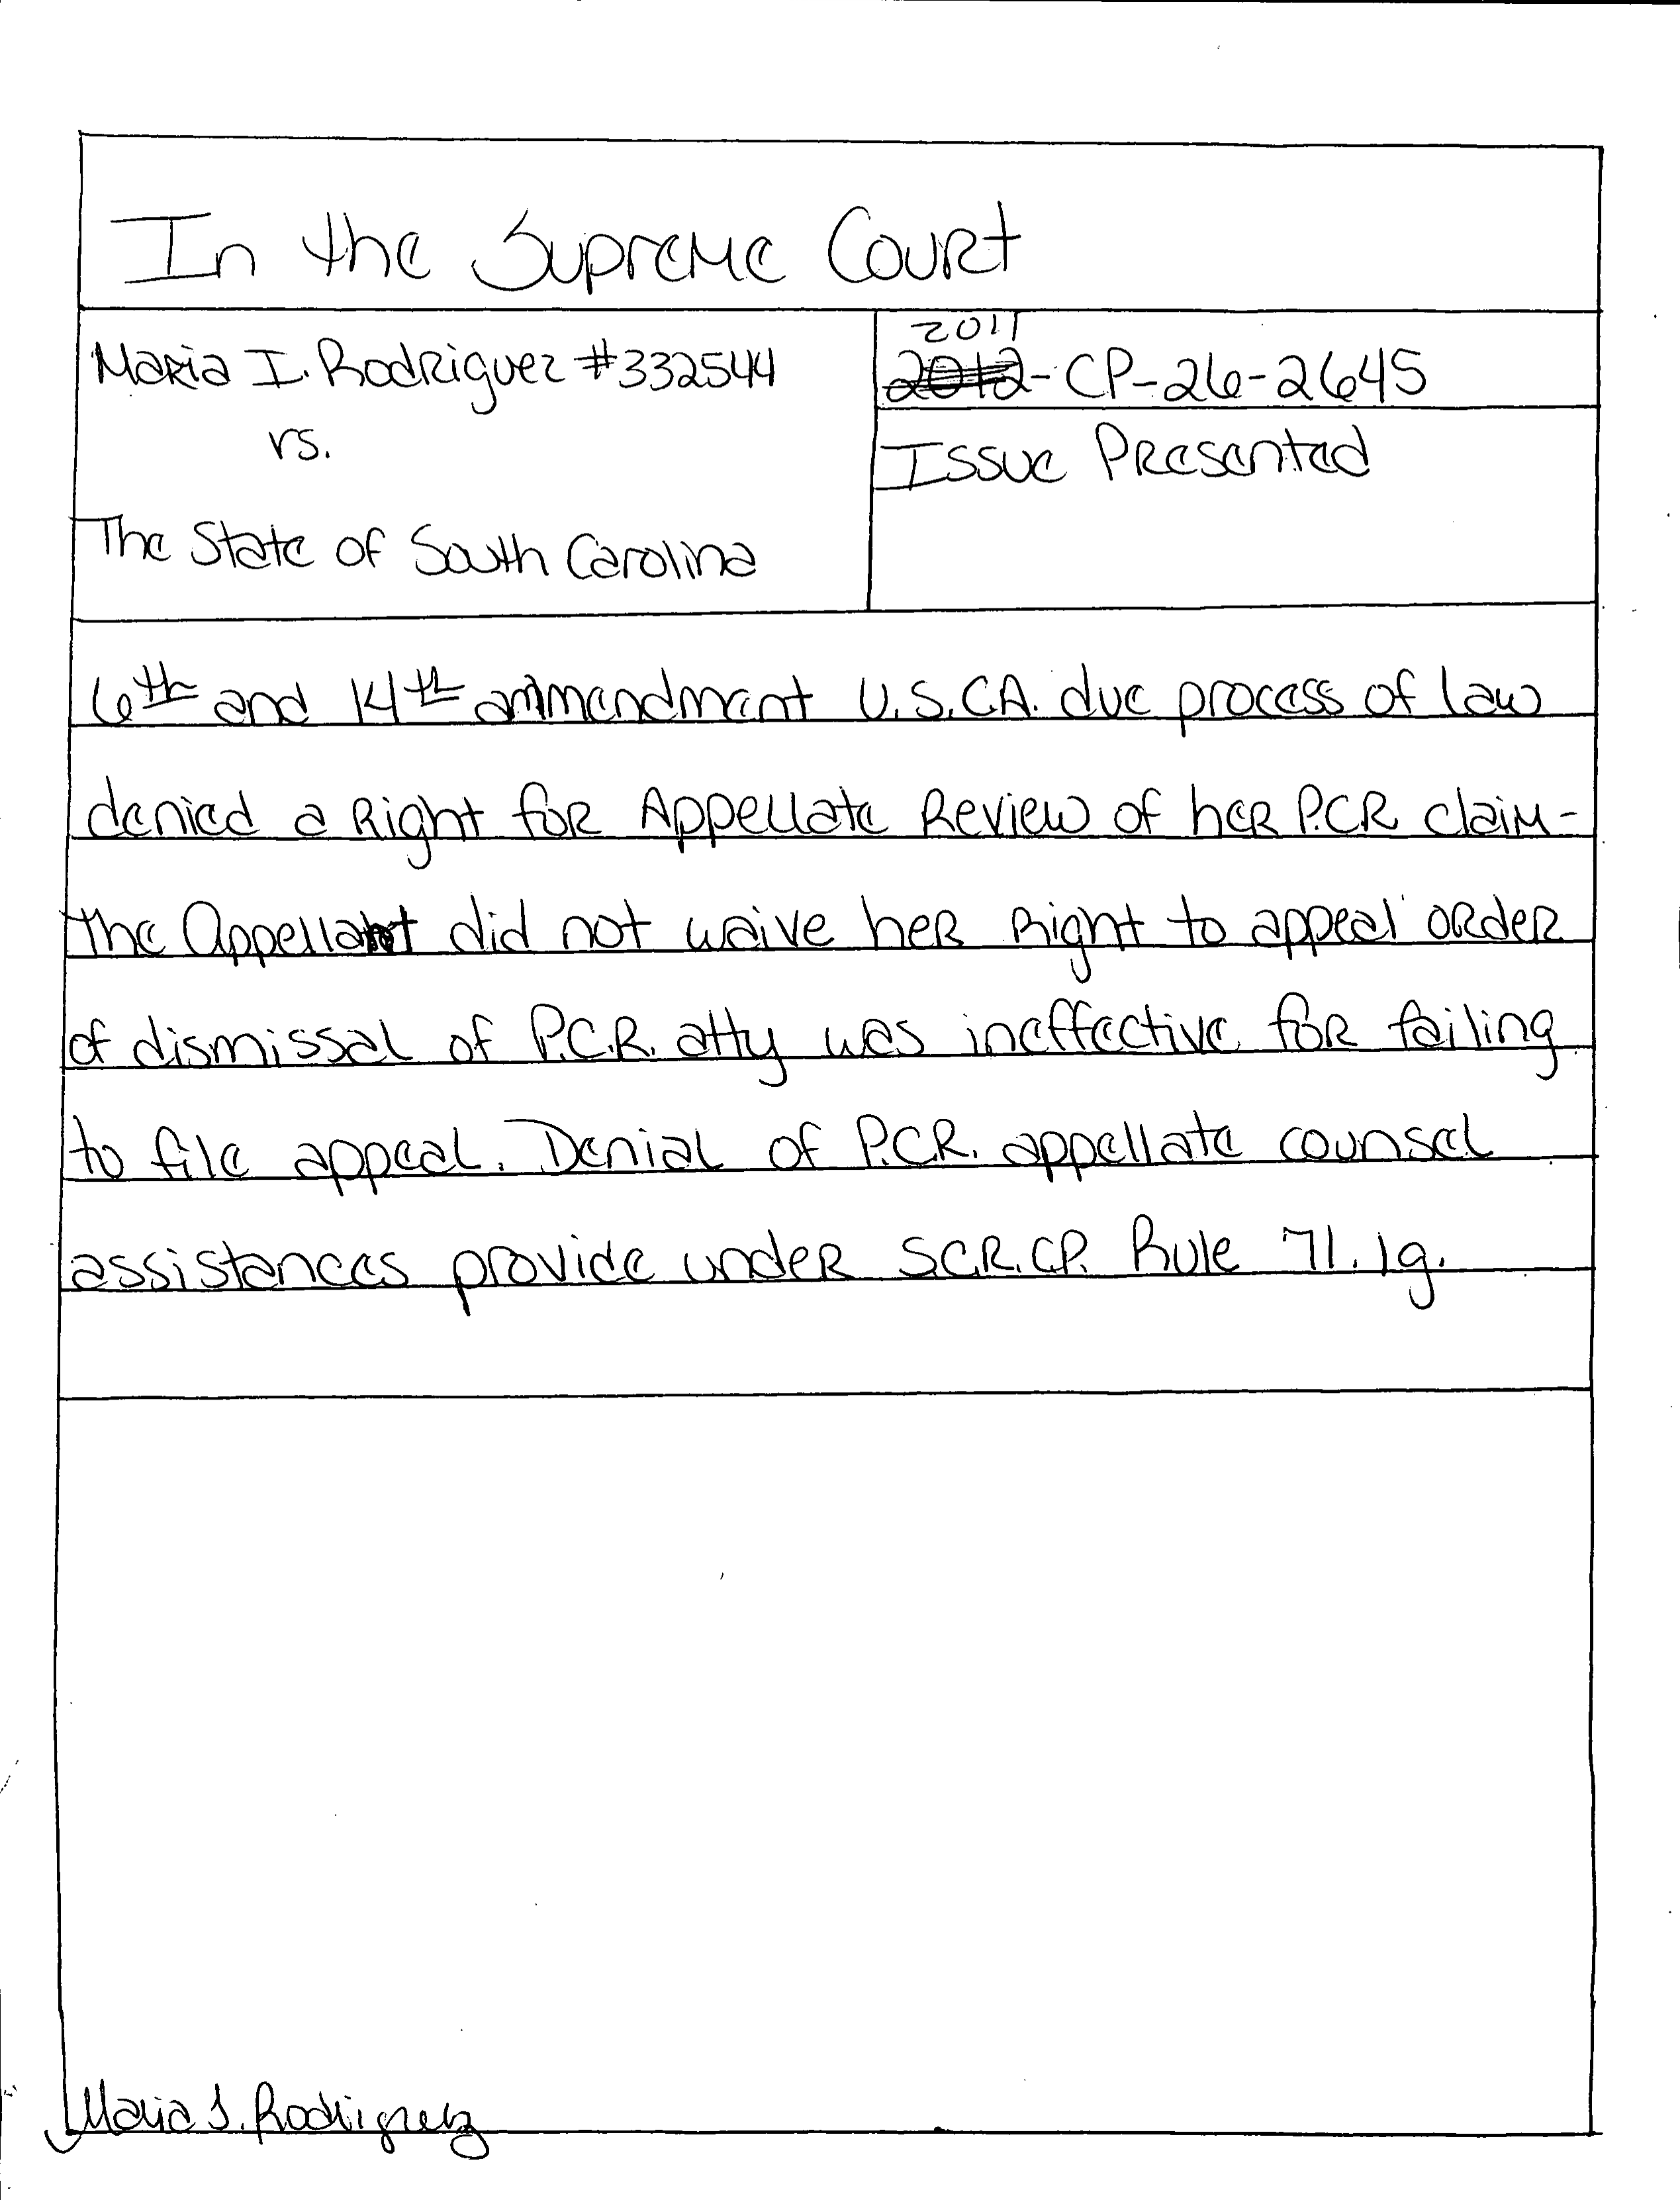 In the Supreme Court
Maria I. Rodriguez #332544
vs.
The State of South Carolina
2011
2012-CP-26-2645
Issue Presented
6th and 14th ammendment U.S.C.A. due process of law
denied a Right for Appellate Review of her P.C.R claim-
the Appellant did not waive her Right to appeal order
of dismissal of P.C.R. atty was ineffective for failing
to file appeal. Denial of P.C.R. appellate counsel
assistances provide under S.C.R.C.P. Rule 71.1g.
Maria I. Rodriguez